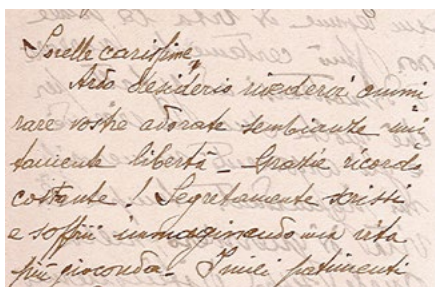 Sorelle carissime,
Ardo desiderio rivedervi ammi
rare vostre adorate sembianze uni
tamente libertà - Grazie ricordo
costante! Segretamente scrissi
e soffrii immaginando mia vita
più gioconda - I miei patimenti